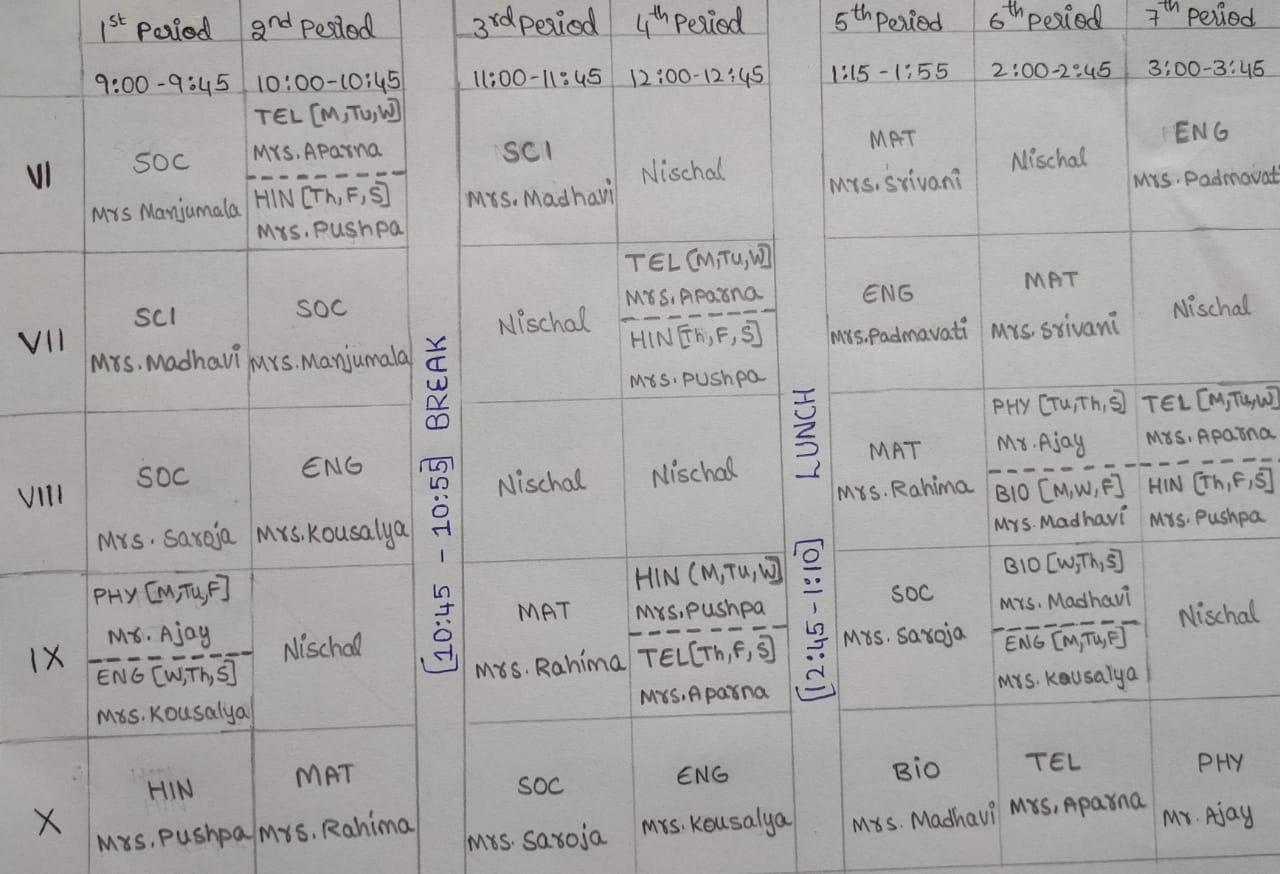 1st Period 2nd Period 3rd Period 4th Period 5th Period 6th Period 7th Period
9:00-9:45 10:00-10:45 11:00-11:45 12:00-12:45 1:15-1:55 2:00-2:45 3:00-3:45
VI
SOC
Mrs Manjumala
TEL [M,Tu,W]
Mrs. Aparna
HIN [Th,F,S]
Mrs. Pushpa
SCI
Mrs. Madhavi
Nischal
MAT
Mrs. Srivani
Nischal
ENG
Mrs. Padmavati
VII
SCI
Mrs. Madhavi
SOC
Mrs. Manjumala
Nischal
TEL [M,Tu,W]
Mrs. Aparna
HIN [Th,F,S]
Mrs. Pushpa
ENG
Mrs. Padmavati
MAT
Mrs. Srivani
Nischal
VIII
SOC
Mrs. Saroja
ENG
Mrs. Kousalya
Nischal
Nischal
MAT
Mrs. Rahima
PHY [Tu,Th,S]
Mr. Ajay
BIO [M,W,F]
Mrs. Madhavi
TEL [M,Tu,W]
Mrs. Aparna
HIN [Th,F,S]
Mrs. Pushpa
IX
PHY [M,Tu,F]
Mr. Ajay
ENG [W,Th,S]
Mrs. Kousalya
Nischal
MAT
Mrs. Rahima
HIN (M,Tu,W]
Mrs. Pushpa
TEL [Th,F,S]
Mrs. Aparna
SOC
Mrs. Saroja
BIO [W,Th,S]
Mrs. Madhavi
ENG [M,Tu,F]
Mrs. Kousalya
Nischal
X
HIN
Mrs. Pushpa
MAT
Mrs. Rahima
SOC
Mrs. Saroja
ENG
Mrs. Kousalya
BiO
Mrs. Madhavi
TEL
Mrs, Aparna
PHY
Mr. Ajay
[10:45 - 10:55] BREAK
[12:45-1:10] LUNCH